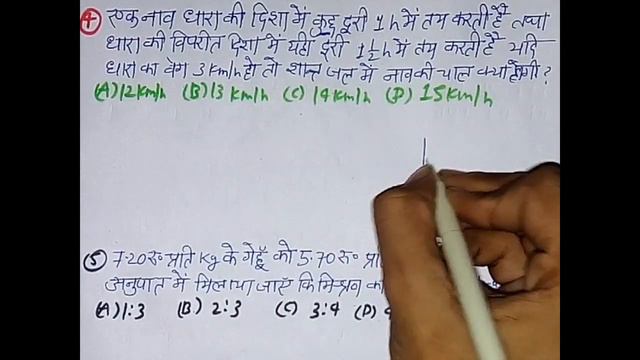 (4) एक नाव धारा की दिशा में कुछ दूरी 1 h में तय करती है तथा
धारा की विपरीत दिशा में यही दूरी 1 1/2 h में तय करती है यदि
धारा का वेग 3 km/h हो तो शान्त जल में नाव की चाल क्या होगी ?
(A) 12 km/h (B) 13 km/h (C) 14 km/h (D) 15 km/h
(5) 7.20 रु० प्रति kg के गेहूँ को 5.70 रु०
अनुपात में मिलाया जाए कि मिश्रण का
(A) 1:3 (B) 2:3 (C) 3:4 (D)